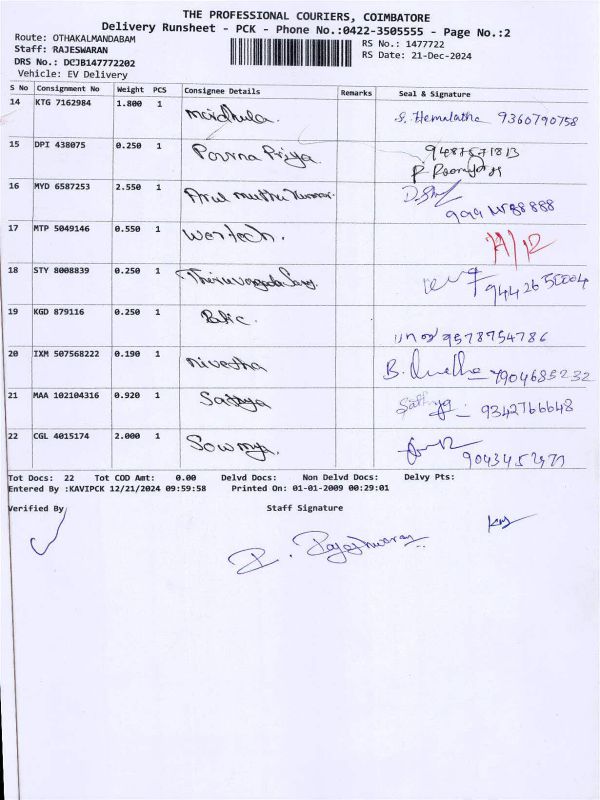 THE PROFESSIONAL COURIERS, COIMBATORE
Delivery Runsheet - PCK - Phone No.:0422-3505555 - Page No.:2
Route: OTHAKALMANDABAM
Staff: RAJESWARAN
RS No.: 1477722
DRS No.: DCJB147772202
RS Date: 21-Dec-2024
Vehicle: EV Delivery
S No Consignment No Weight PCS Consignee Details Remarks Seal & Signature
14 KTG 7162984 1.800 1 maidhula. S. Hemalatha 9360790758
15 DPI 438075 0.250 1 Poorna Priya.
16 MYD 6587253 2.550 1 Arul muthu Kumar.
17 MTP 5049146 0.550 1
18 STY 8008839 0.250 1
19 KGD 879116 0.250 1 9578754786
20 IXM 507568222 0.190 1 nivestha B. 7904685232
21 MAA 102104316 0.920 1 Sathya Sathya 9342766648
22 CGL 4015174 2.000 1 Sowmya.
Tot Docs: 22 Tot COD Amt: 0.00 Delvd Docs: Non Delvd Docs: Delvy Pts:
Entered By :KAVIPCK 12/21/2024 09:59:58 Printed On: 01-01-2009 00:29:01
Verified By Staff Signature